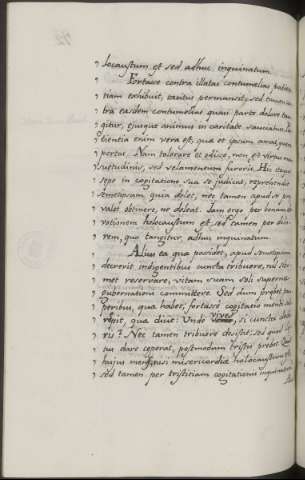 locaustum est sed adhuc inquinatum.
Fortasse contra illatas contumelias patien
tiam exhibuit, tacitus permansit, sed tamen con
tra easdem contumelias quasi parte dolore tan
gitur, ejusque animus in caritate sauciatur. Pa
tientia enim vera est, quæ et ipsum amat, quem
portat. Nam tolerare et odisse, non est virtus man
suetudinis, sed velamentum furoris. Hic itaque
sepe in cogitatione sua se judicans, reprehendit
semetipsum quia dolet, nec tamen apud se præ
valet obtinere, ut doleat. Iam ergo per bonam de
votionem holocaustum est, sed tamen per dolo
rem, quo tangitur, adhuc inquinatum.
Alius ea qua possidet, apud semetipsum
decrevit indigentibus cuncta tribuere, nil sibi
met reservare, vitam suam soli superna
gubernationi committere. Sed dum præbet pau
peribus, quæ habet, fortasse cogitatio menti sub
repit, quæ dicit: Unde vives, si cuncta dede
ris? Nec tamen tribuere desistit: sed quod læ
tus dare ceperat, postmodum tristis præbet. Quid
hujus mens, nisi misericordiæ holocaustum est,
sed tamen per tristitiam cogitationis inquinatum